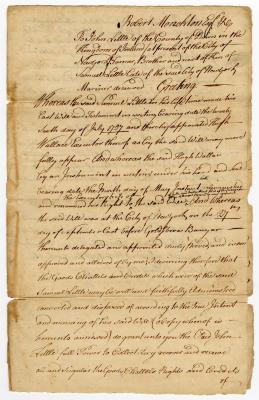 Robert Monckton Esq. &c.
To John Little of the County of Down in the
Kingdom of Ireland at present of the City of
Newyork Farmer, Brother and next of Kin of
Samuel Little late of the said City of Newyork
Mariner deceased Greeting
Whereas the said Samuel Little in his life time made his
Last Will and Testament in writing bearing date the twenty
Sixth day of July 1757 and thereby appointed Hugh
Wallace Executor thereof as by the said Will may more
fully appear And whereas the said Hugh Wallace
by an Instrument in writing under his hand and Seal
bearing date the Tenth day of May
renounced his right to the said And Whereas
the said Will was at the City of Newyork on the 27
day of September Last before Goldsbrow Banyar
thereunto delegated and appointed duly proved, and is now
approved and allowed of by me; I deeming therefore that
the Goods Chattels and Credits which were of the said
Samuel Little may be well and faithfully Administered
converted and disposed of according to the true Intent
and meaning of the said Will (a Copy whereof is
hereunto annexed) do grant unto you the said John
Little full Power to Collect Levy recover and receive
all and singular the Goods Chattels Rights and Credits
of